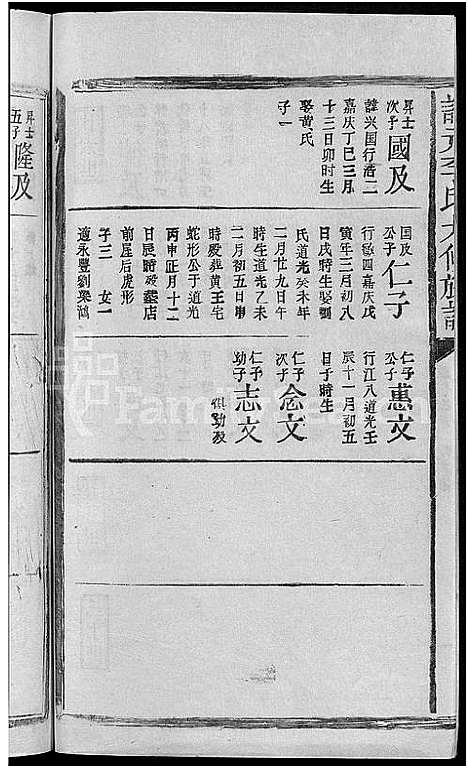 昇士
次子
國及
諱兴国行濟二
嘉庆丁巳三月
十三日卯时生
娶黄氏
子一
国及
公子
仁子
行敏四嘉庆戊
寅年三月初八
日戌時生娶
氏道光癸未年
二月廿九日午
時生道光乙未
二月初五日
時殁葬黄王宅
蛇形公于道光
丙申正月十二
日辰時殁墓店
前屋后虎形
子三 女一
適永豐劉
仁子
公子
惠文
行江八道光壬
辰十一月初五
日子時生
仁子
次子
念文
仁子
幼子
志文
俱幼殁
昇士
五子
隆及